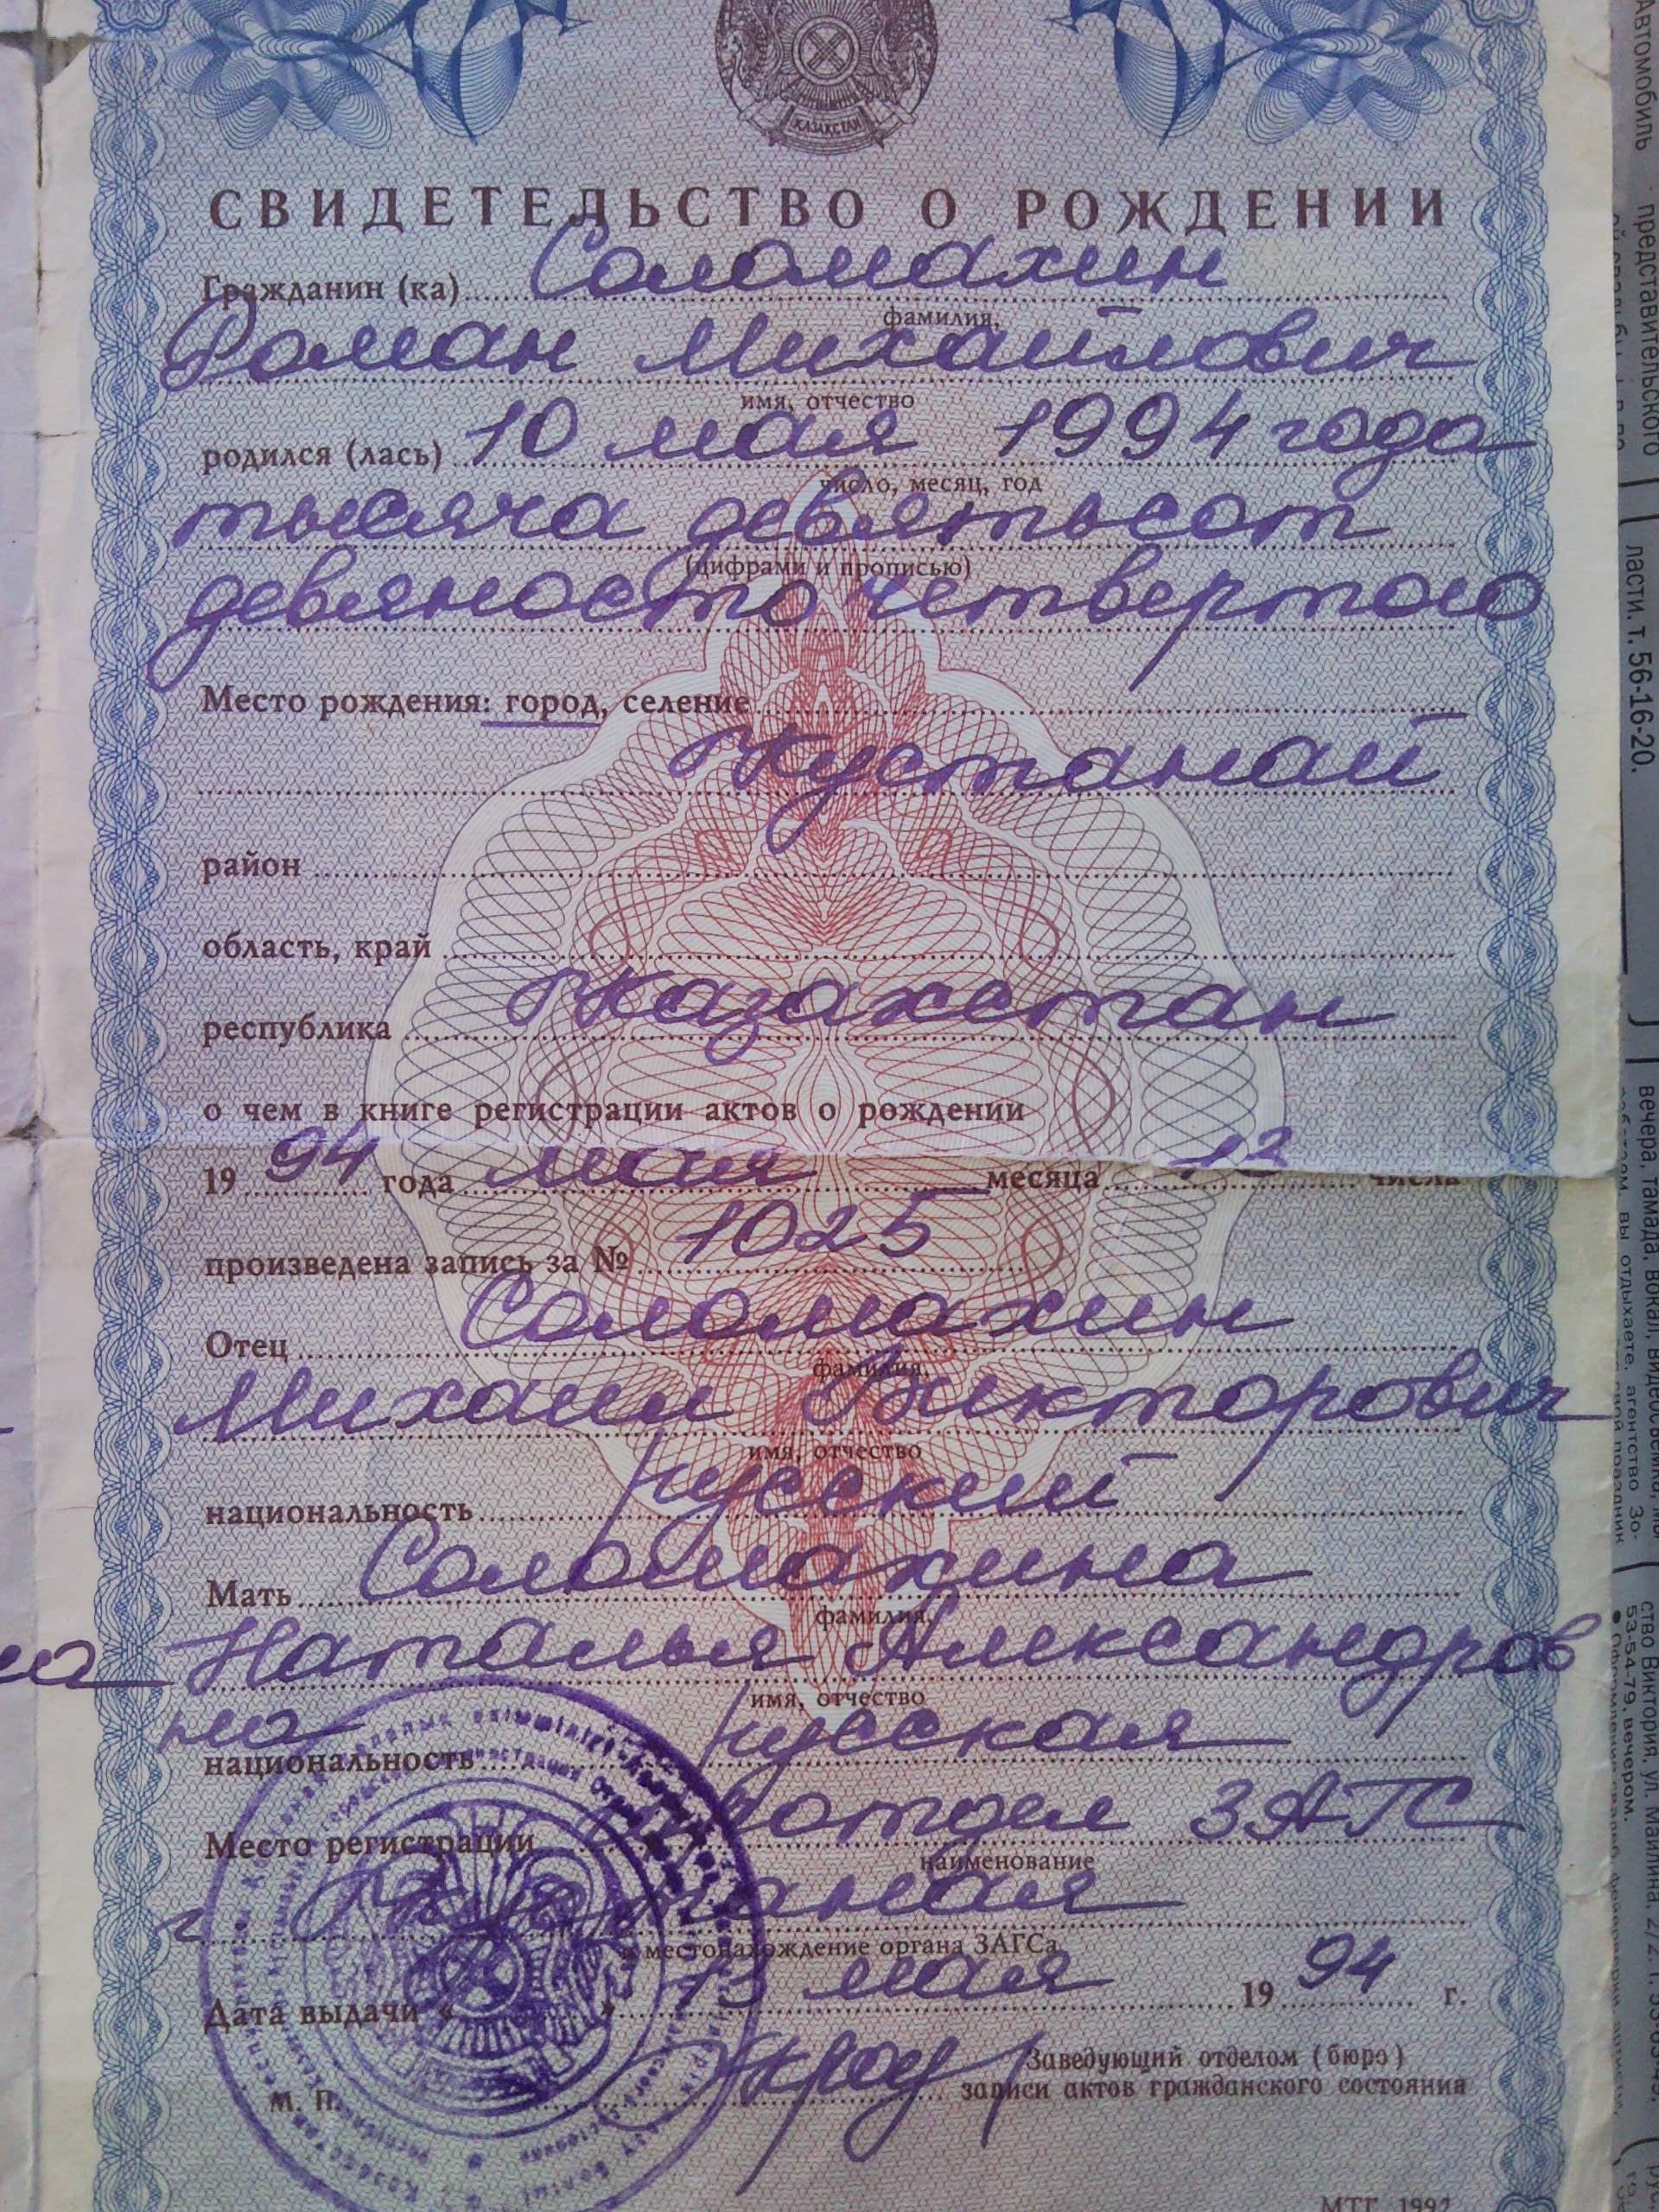 КАЗАХСТАН
СВИДЕТЕЛЬСТВО О РОЖДЕНИИ
Гражданин (ка) Соломахин
фамилия,
Роман Михайлович
имя, отчество
родился (лась) 10 мая 1994 года
число, месяц, год
тысяча девятьсот
(цифрами и прописью)
девяносто четвертого
Место рождения: город, селение
Кустанай
район
область, край
республика Казахстан
о чем в книге регистрации актов о рождении
19 94 года мая месяца числа
произведена запись за № 1025
Отец Соломахин
фамилия,
Михаил Викторович
имя, отчество
национальность русский
Мать Соломахина
фамилия,
Наталья Александров
имя, отчество
на
национальность русская
Место регистрации отдел ЗАГС
наименование
г Кустаная
и местонахождение органа ЗАГСа
Дата выдачи « » 13 мая 19 94 г.
Заведующий отделом (бюро)
М. П. записи актов гражданского состояния
МТГ. 1992
Автомобиль представительского
ласти. т. 56-16-20.
вечера, тамада, вокал, видеосъемка,
вы отдыхаете. агентство
ство Виктория, ул. Майлина, 2/2. т.
53-54-79, вечером.